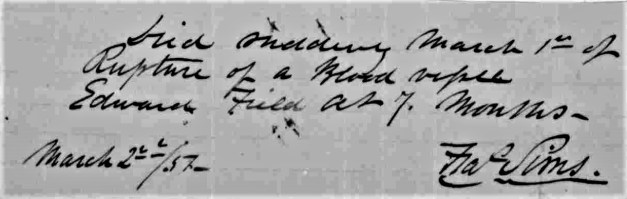 Died suddenly March 1st of
Rupture of a Blood vessel
Edward Field at 7. Months-
March 2nd/57-
Sims.